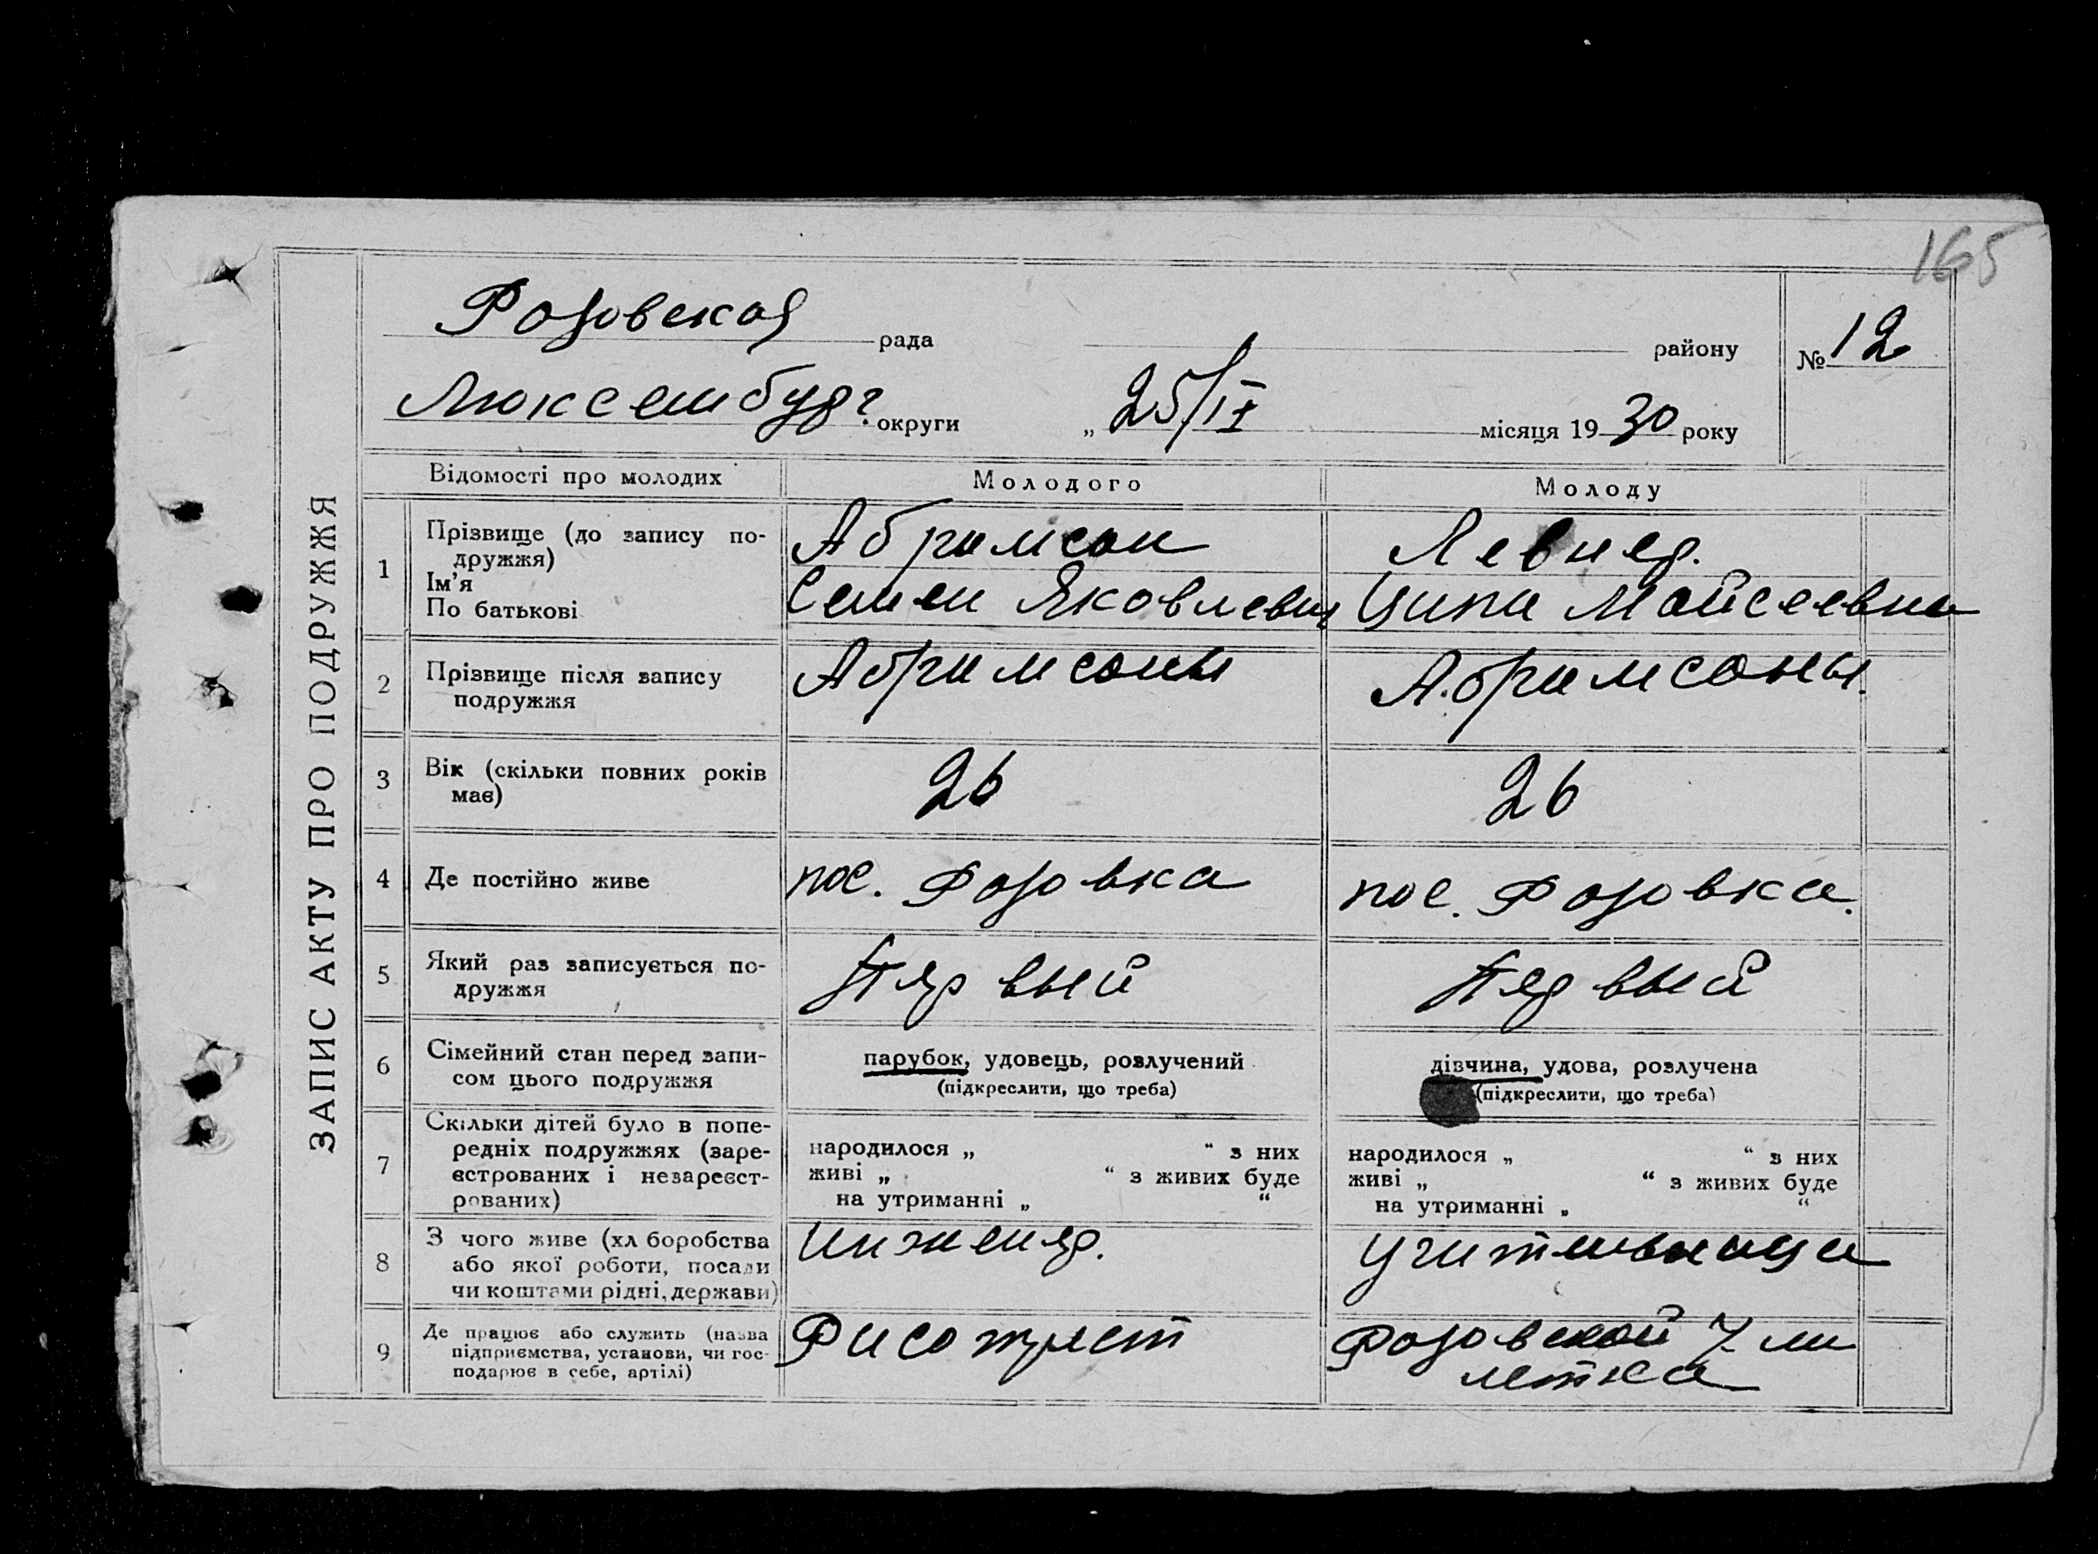 165
ЗАПИС АКТУ ПРО ПОДРУЖЖЯ
Розовская рада району
№ 12
Люксембург. округи „ 25/IX місяця 1930 року
Відомості про молодих Молодого Молоду
1 Прізвище (до запису по-
дружжя)
Ім'я
По батькові
Абрамсон
Семен Яковлевич
Ципа Мойсеевна
2 Прізвище після запису
подружжя
Абрамсоны
Абрамсоны.
3 Вік (скільки повних років
має)
26
26
4 Де постійно живе
пос. Розовка
пос. Розовка.
5 Який раз записується по-
дружжя
Первый
Первый
6 Сімейний стан перед запи-
сом цього подружжя
парубок, удовець, розлучений
(підкреслити, що треба)
дівчина, удова, розлучена
(підкреслити, що треба)
7 Скільки дітей було в попе-
редніх подружжях (заре-
єстрованих і незареєст-
рованих)
народилося „ “ з них
живі „ “ з живих буде
на утриманні „ “
народилося „ “ з них
живі „ “ з живих буде
на утриманні „ “
8 З чого живе (хліборобства
або якої роботи, посади
чи коштами рідні, держави)
инженер.
учительница
9 Де працює або служить (назва
підприємства, установи, чи гос-
подарює в себе, артілі)
Розовской 7 ми
летка